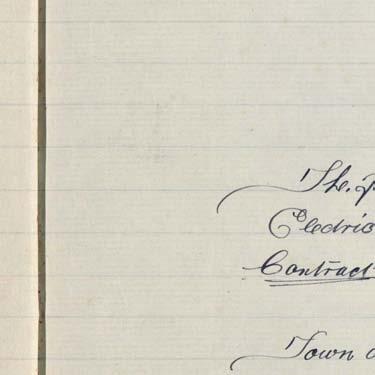 The
Electric
Contract
Town